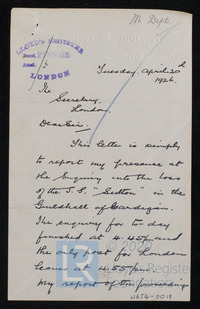 M Dept.
LLOYD'S REGISTER
LONDON
Tuesday, April 20th
1926.
The
Secretary,
London.
Dear Sir,
This letter is simply
to report my presence at
the Enquiry into the loss
of the S.S. "Sutton" in the
Guildhall of Cardigan.
The enquiry for to day
finished at 4.45 p.m. and
the only post for London
leaves at 4.55 p.m.
My report of the proceedings
W656-0018